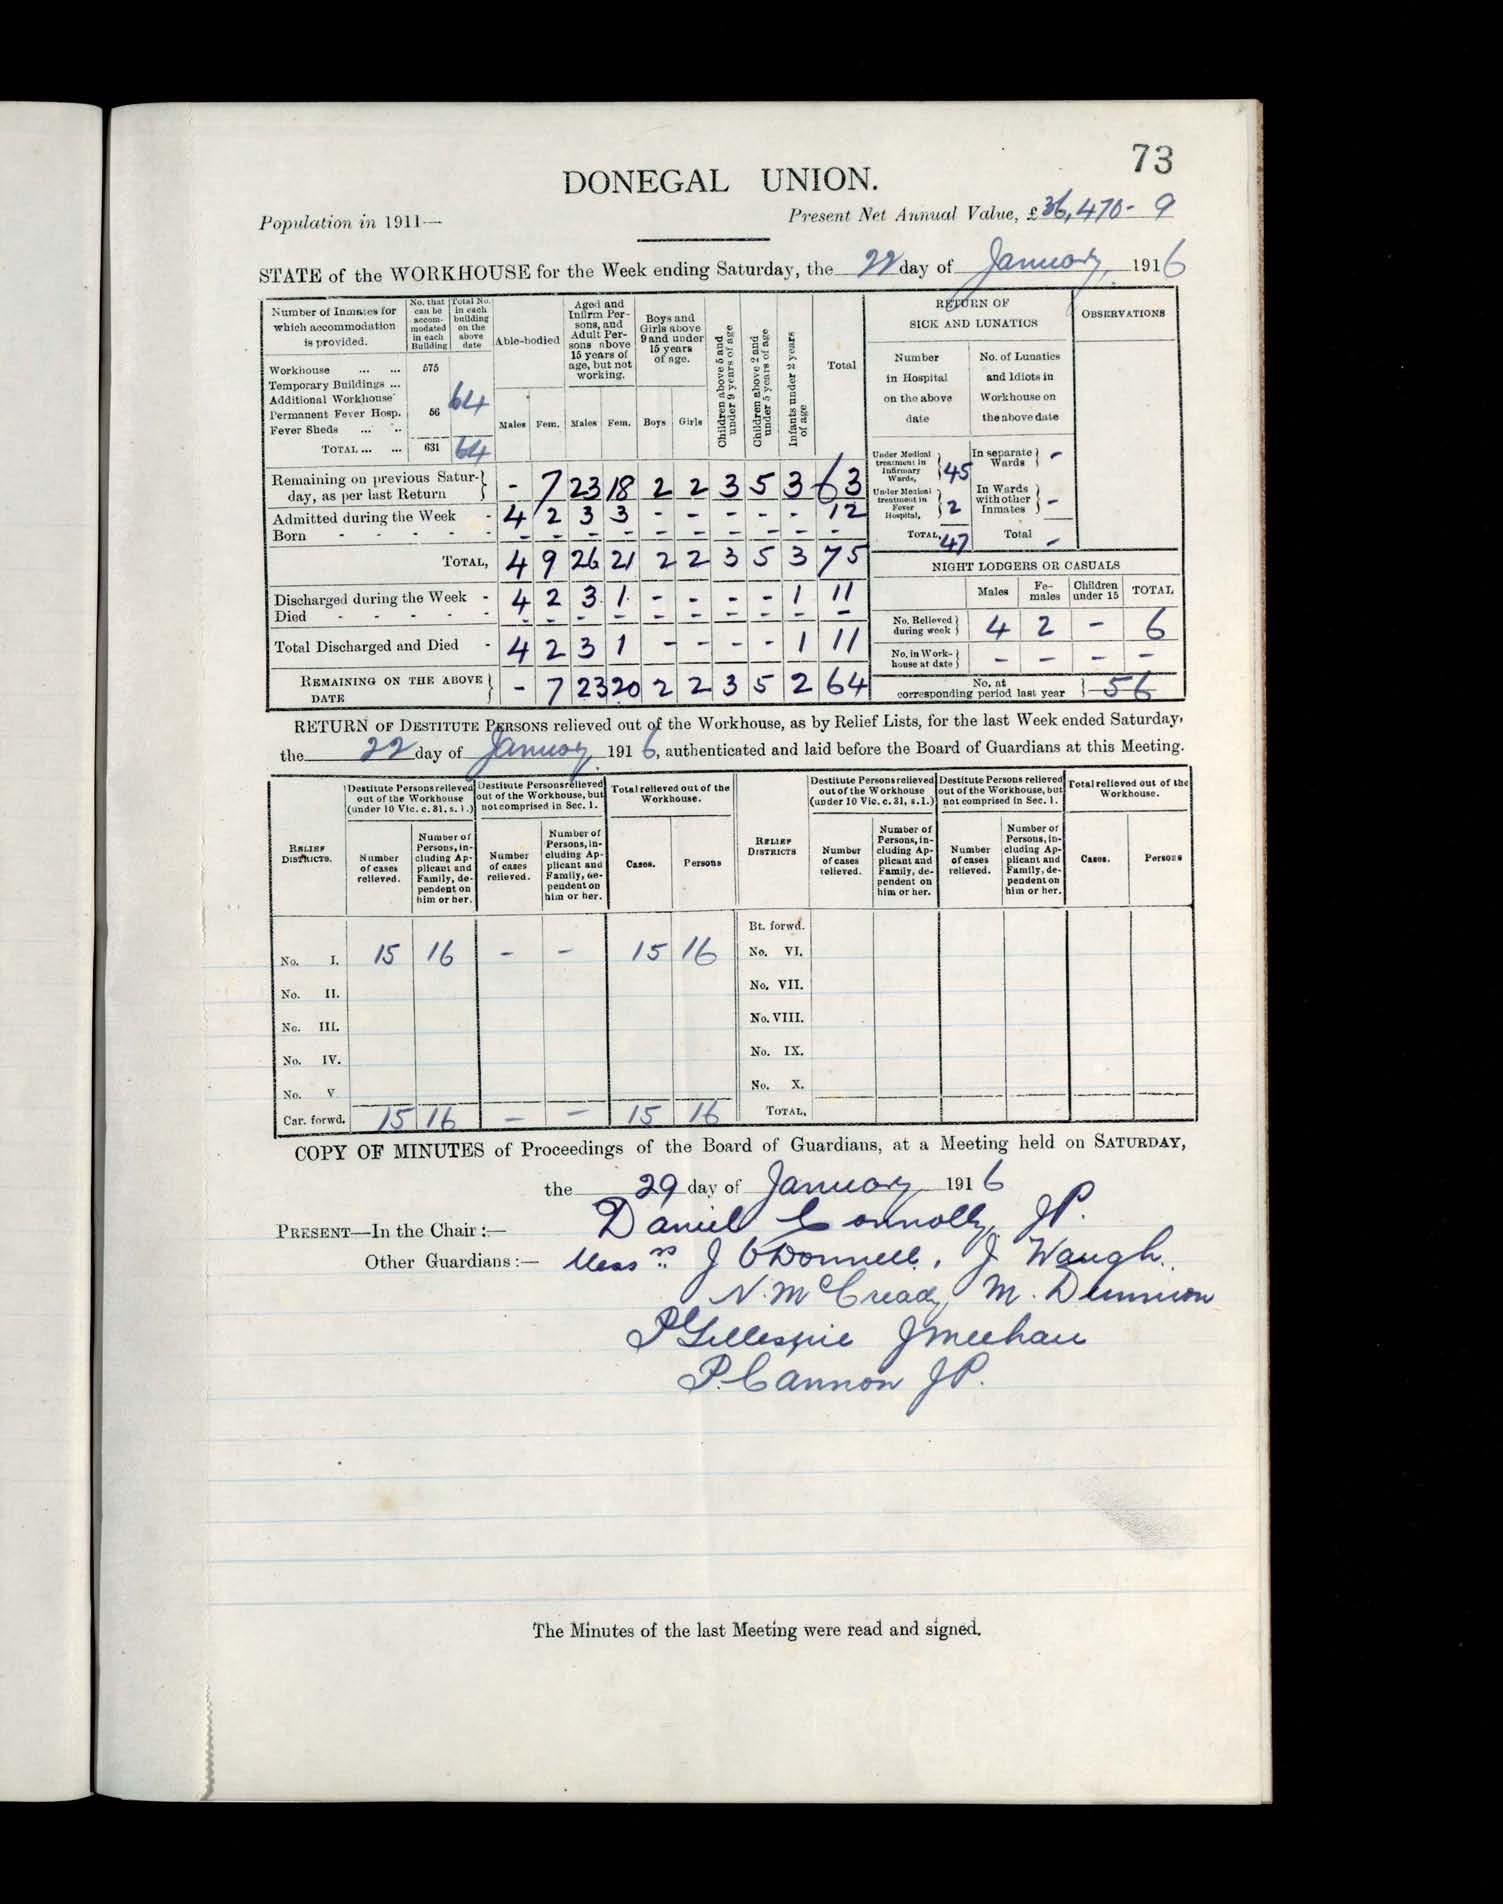 73
DONEGAL UNION.
Population in 1911—
Present Net Annual Value, £36,470- 9
STATE of the WORKHOUSE for the Week ending Saturday, the 22 day of January, 1916
Number of Inmates for which accommodation is provided.
No. that can be accommodated in each Building
Total No. in each building on the above date
Able-bodied
Aged and Infirm Persons, and Adult Persons above 15 years of age, but not working.
Boys and Girls above 9 and under 15 years of age.
Children above 5 and under 9 years of age
Children above 2 and under 5 years of age
Infants under 2 years of age
Total
Males Fem. Males Fem. Boys Girls
Workhouse ... ... 575
Temporary Buildings ...
Additional Workhouse 64
Permanent Fever Hosp. 56
Fever Sheds ... ..
TOTAL ... ... 631 64
Remaining on previous Saturday, as per last Return } - 7 23 18 2 2 3 5 3 63
Admitted during the Week - 4 2 3 3 - - - - - 12
Born - - - - - - - - - - - - - - -
TOTAL, 4 9 26 21 2 2 3 5 3 75
Discharged during the Week - 4 2 3 1 - - - - 1 11
Died - - - - - - - - - - - - - -
Total Discharged and Died - 4 2 3 1 - - - - 1 11
REMAINING ON THE ABOVE DATE } - 7 23 20 2 2 3 5 2 64
RETURN OF SICK AND LUNATICS
OBSERVATIONS
Number in Hospital on the above date
No. of Lunatics and Idiots in Workhouse on the above date
Under Medical treatment in Infirmary Wards, } 45
In separate Wards } -
Under Medical treatment in Fever Hospital, } 2
In Wards with other Inmates } -
TOTAL, 47
Total -
NIGHT LODGERS OR CASUALS
Males Females Children under 15 TOTAL
No. Relieved during week } 4 2 - 6
No. in Workhouse at date } - - - -
No. at corresponding period last year } 56
RETURN OF DESTITUTE PERSONS relieved out of the Workhouse, as by Relief Lists, for the last Week ended Saturday,
the 22 day of January 1916, authenticated and laid before the Board of Guardians at this Meeting.
RELIEF DISTRICTS.
Destitute Persons relieved out of the Workhouse (under 10 Vic. c. 31, s. 1.)
Destitute Persons relieved out of the Workhouse, but not comprised in Sec. 1.
Total relieved out of the Workhouse.
Number of cases relieved.
Number of Persons, including Applicant and Family, dependent on him or her.
Number of cases relieved.
Number of Persons, including Applicant and Family, dependent on him or her.
Cases. Persons
RELIEF DISTRICTS
Destitute Persons relieved out of the Workhouse (under 10 Vic. c. 31, s.1.)
Destitute Persons relieved out of the Workhouse, but not comprised in Sec. 1.
Total relieved out of the Workhouse.
Number of cases relieved.
Number of Persons, including Applicant and Family, dependent on him or her.
Number of cases relieved.
Number of Persons, including Applicant and Family, dependent on him or her.
Cases. Persons
No. I. 15 16 - - 15 16
No. II.
No. III.
No. IV.
No. V
Car. forwd. 15 16 - - 15 16
Bt. forwd.
No. VI.
No. VII.
No. VIII.
No. IX.
No. X.
TOTAL,
COPY OF MINUTES of Proceedings of the Board of Guardians, at a Meeting held on SATURDAY,
the 29 day of January 1916
PRESENT—In the Chair :— Daniel Connolly, JP.
Other Guardians :— Messrs J O'Donnell, J Waugh.
N. McCready, M. Dunnion
P Gillespie J Meehan
P. Cannon JP.
The Minutes of the last Meeting were read and signed.